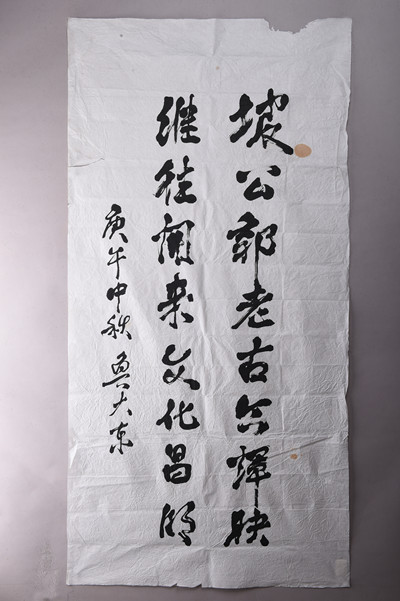 坡公郭老古今辉映
继往开来文化昌明
庚午中秋 鲁大东